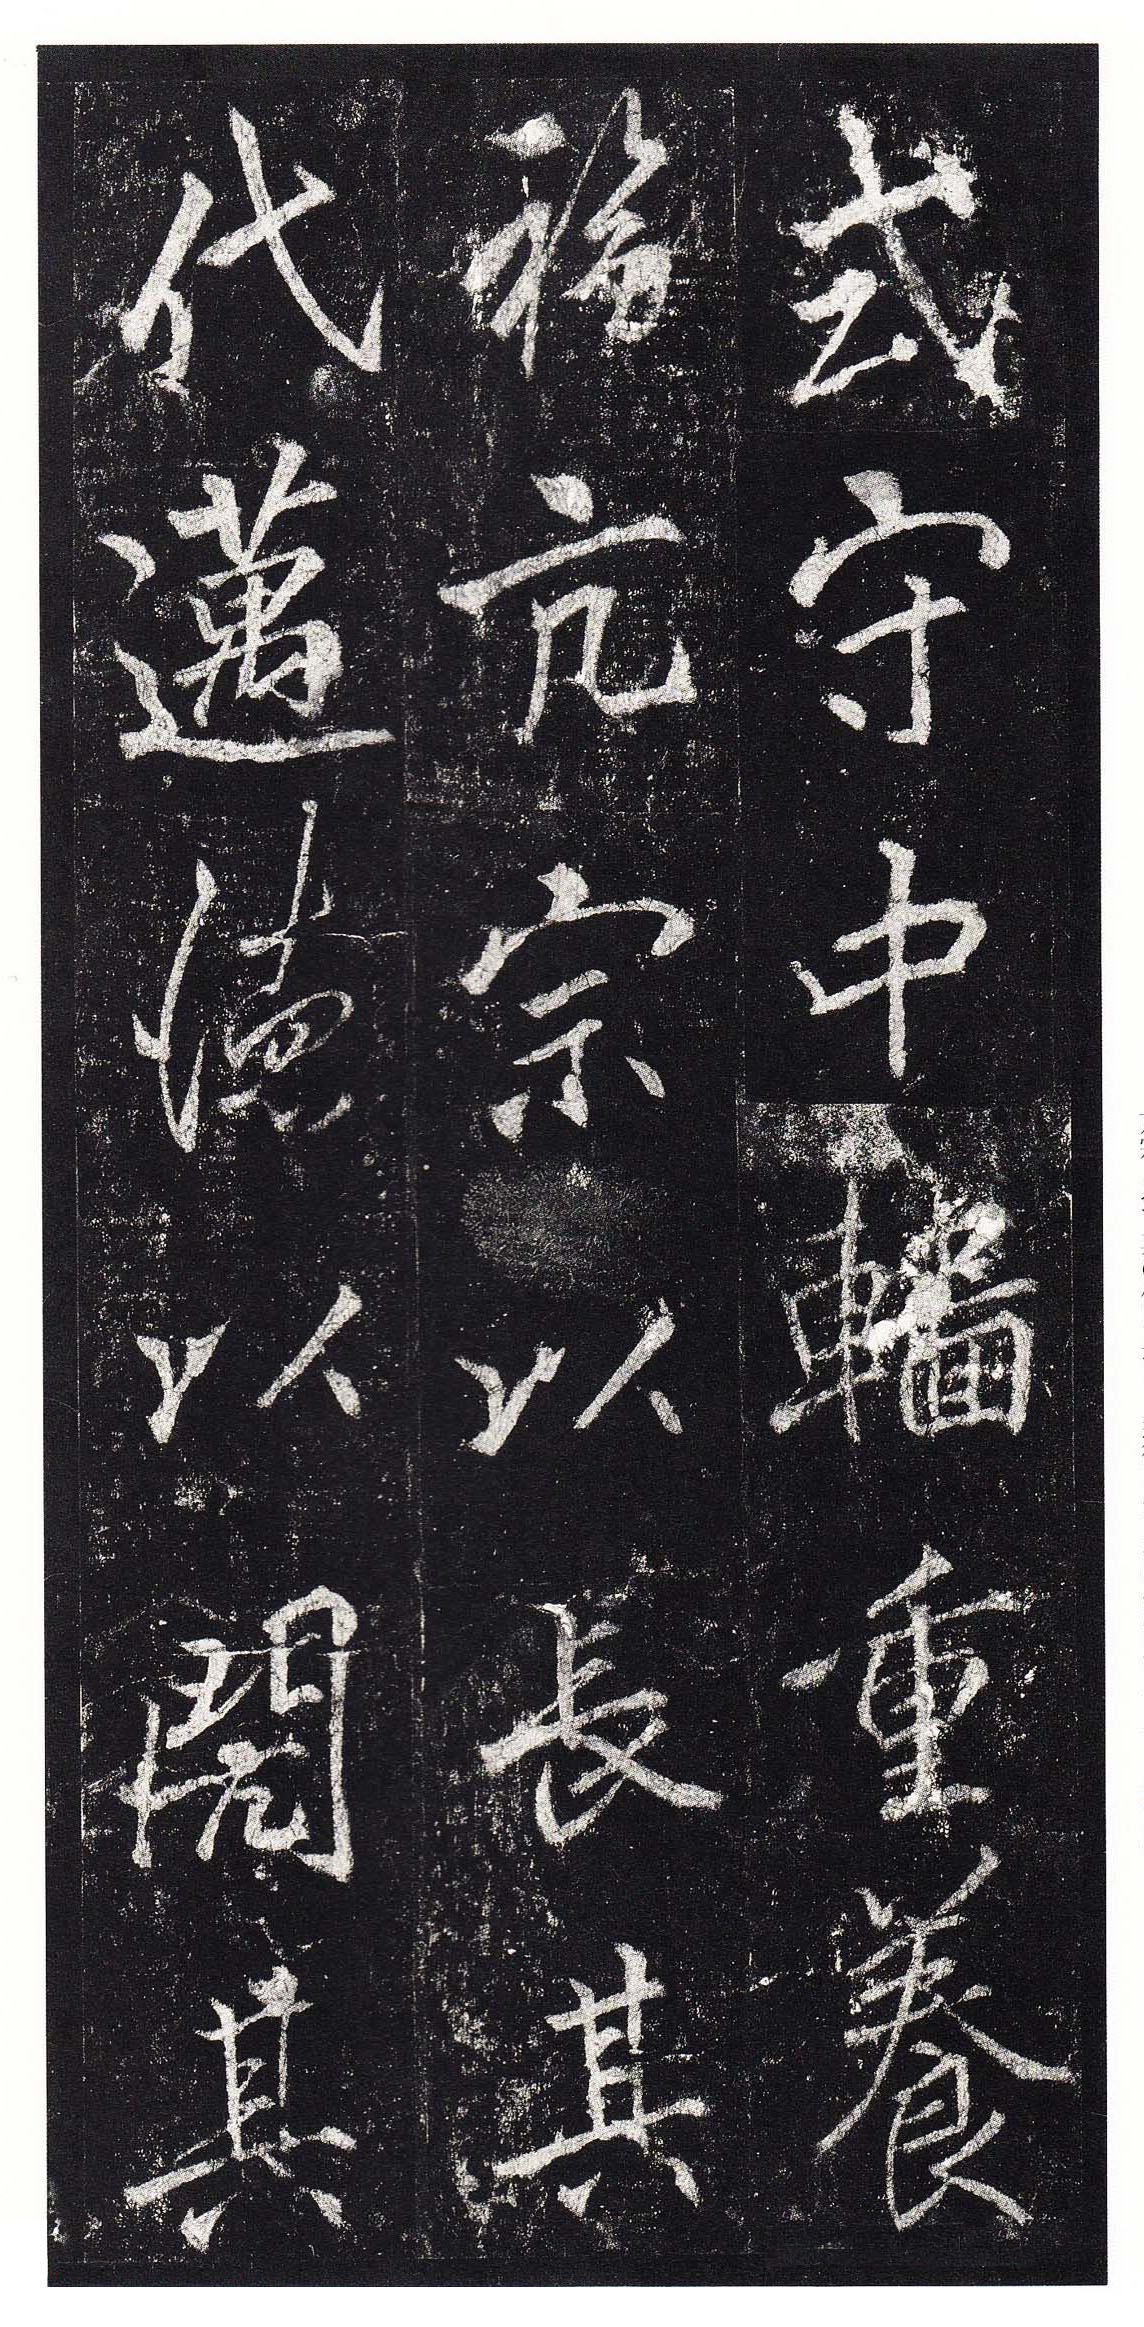 式守中輜重養
福亢宗以長其
代邁德以闊其